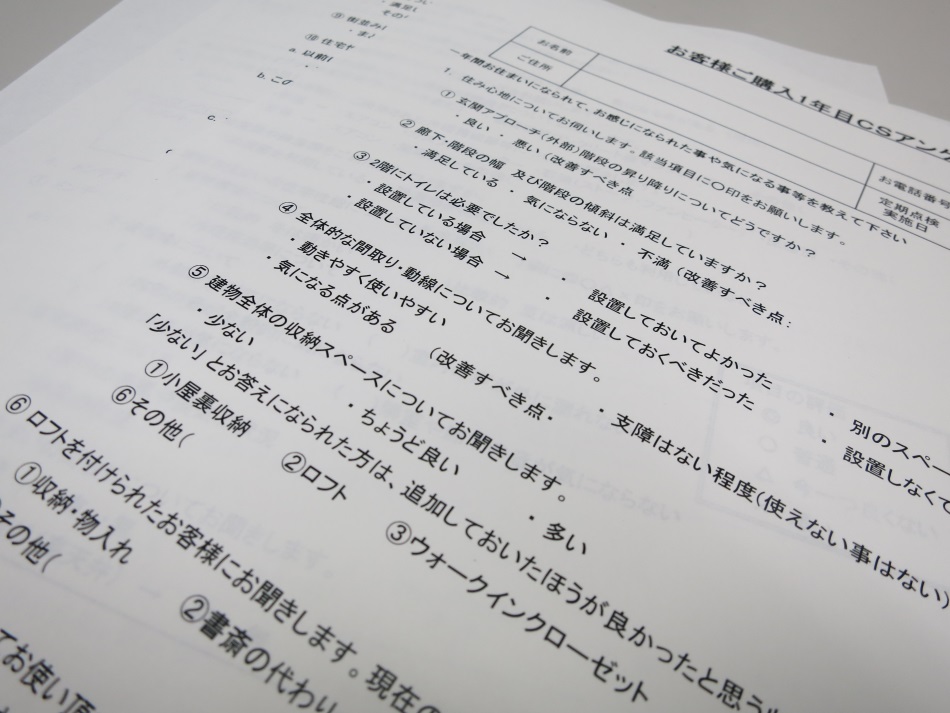 お客様ご購入1年目CSアン
お名前
ご住所
お電話番号
定期点検
実施日
一年間お住まいになられて、お感じになられた事や気になる事等を教えて下さい
1. 住み心地についてお伺いします。該当項目に○印をお願いします。
① 玄関アプローチ(外部)階段の昇り降りについてどうですか?
・良い ・ 悪い (改善すべき点
② 廊下・階段の幅 及び階段の傾斜は満足していますか?
・満足している ・ 気にならない ・ 不満 (改善すべき点:
③ 2階にトイレは必要でしたか?
・設置している場合 → ・ 設置しておいてよかった ・ 別のスペー
・設置していない場合 → ・ 設置しておくべきだった ・ 設置しなくて
④ 全体的な間取り・動線についてお聞きします。
・動きやすく使いやすい ・ 支障はない程度(使えない事はない)
・気になる点がある (改善すべき点・
⑤ 建物全体の収納スペースについてお聞きします。
・少ない ・ちょうど良い ・多い
「少ない」とお答えになられた方は、追加しておいたほうが良かったと思う
①小屋裏収納 ②ロフト ③ウォークインクローゼット
⑥その他(
⑥ ロフトを付けられたお客様にお聞きします。現在の
①収納・物入れ ②書斎の代わり
その他(
てお使い頂
・満足し
その
⑨ 街並み
・ま
⑩ 住宅
a. 以前
b. この
c.